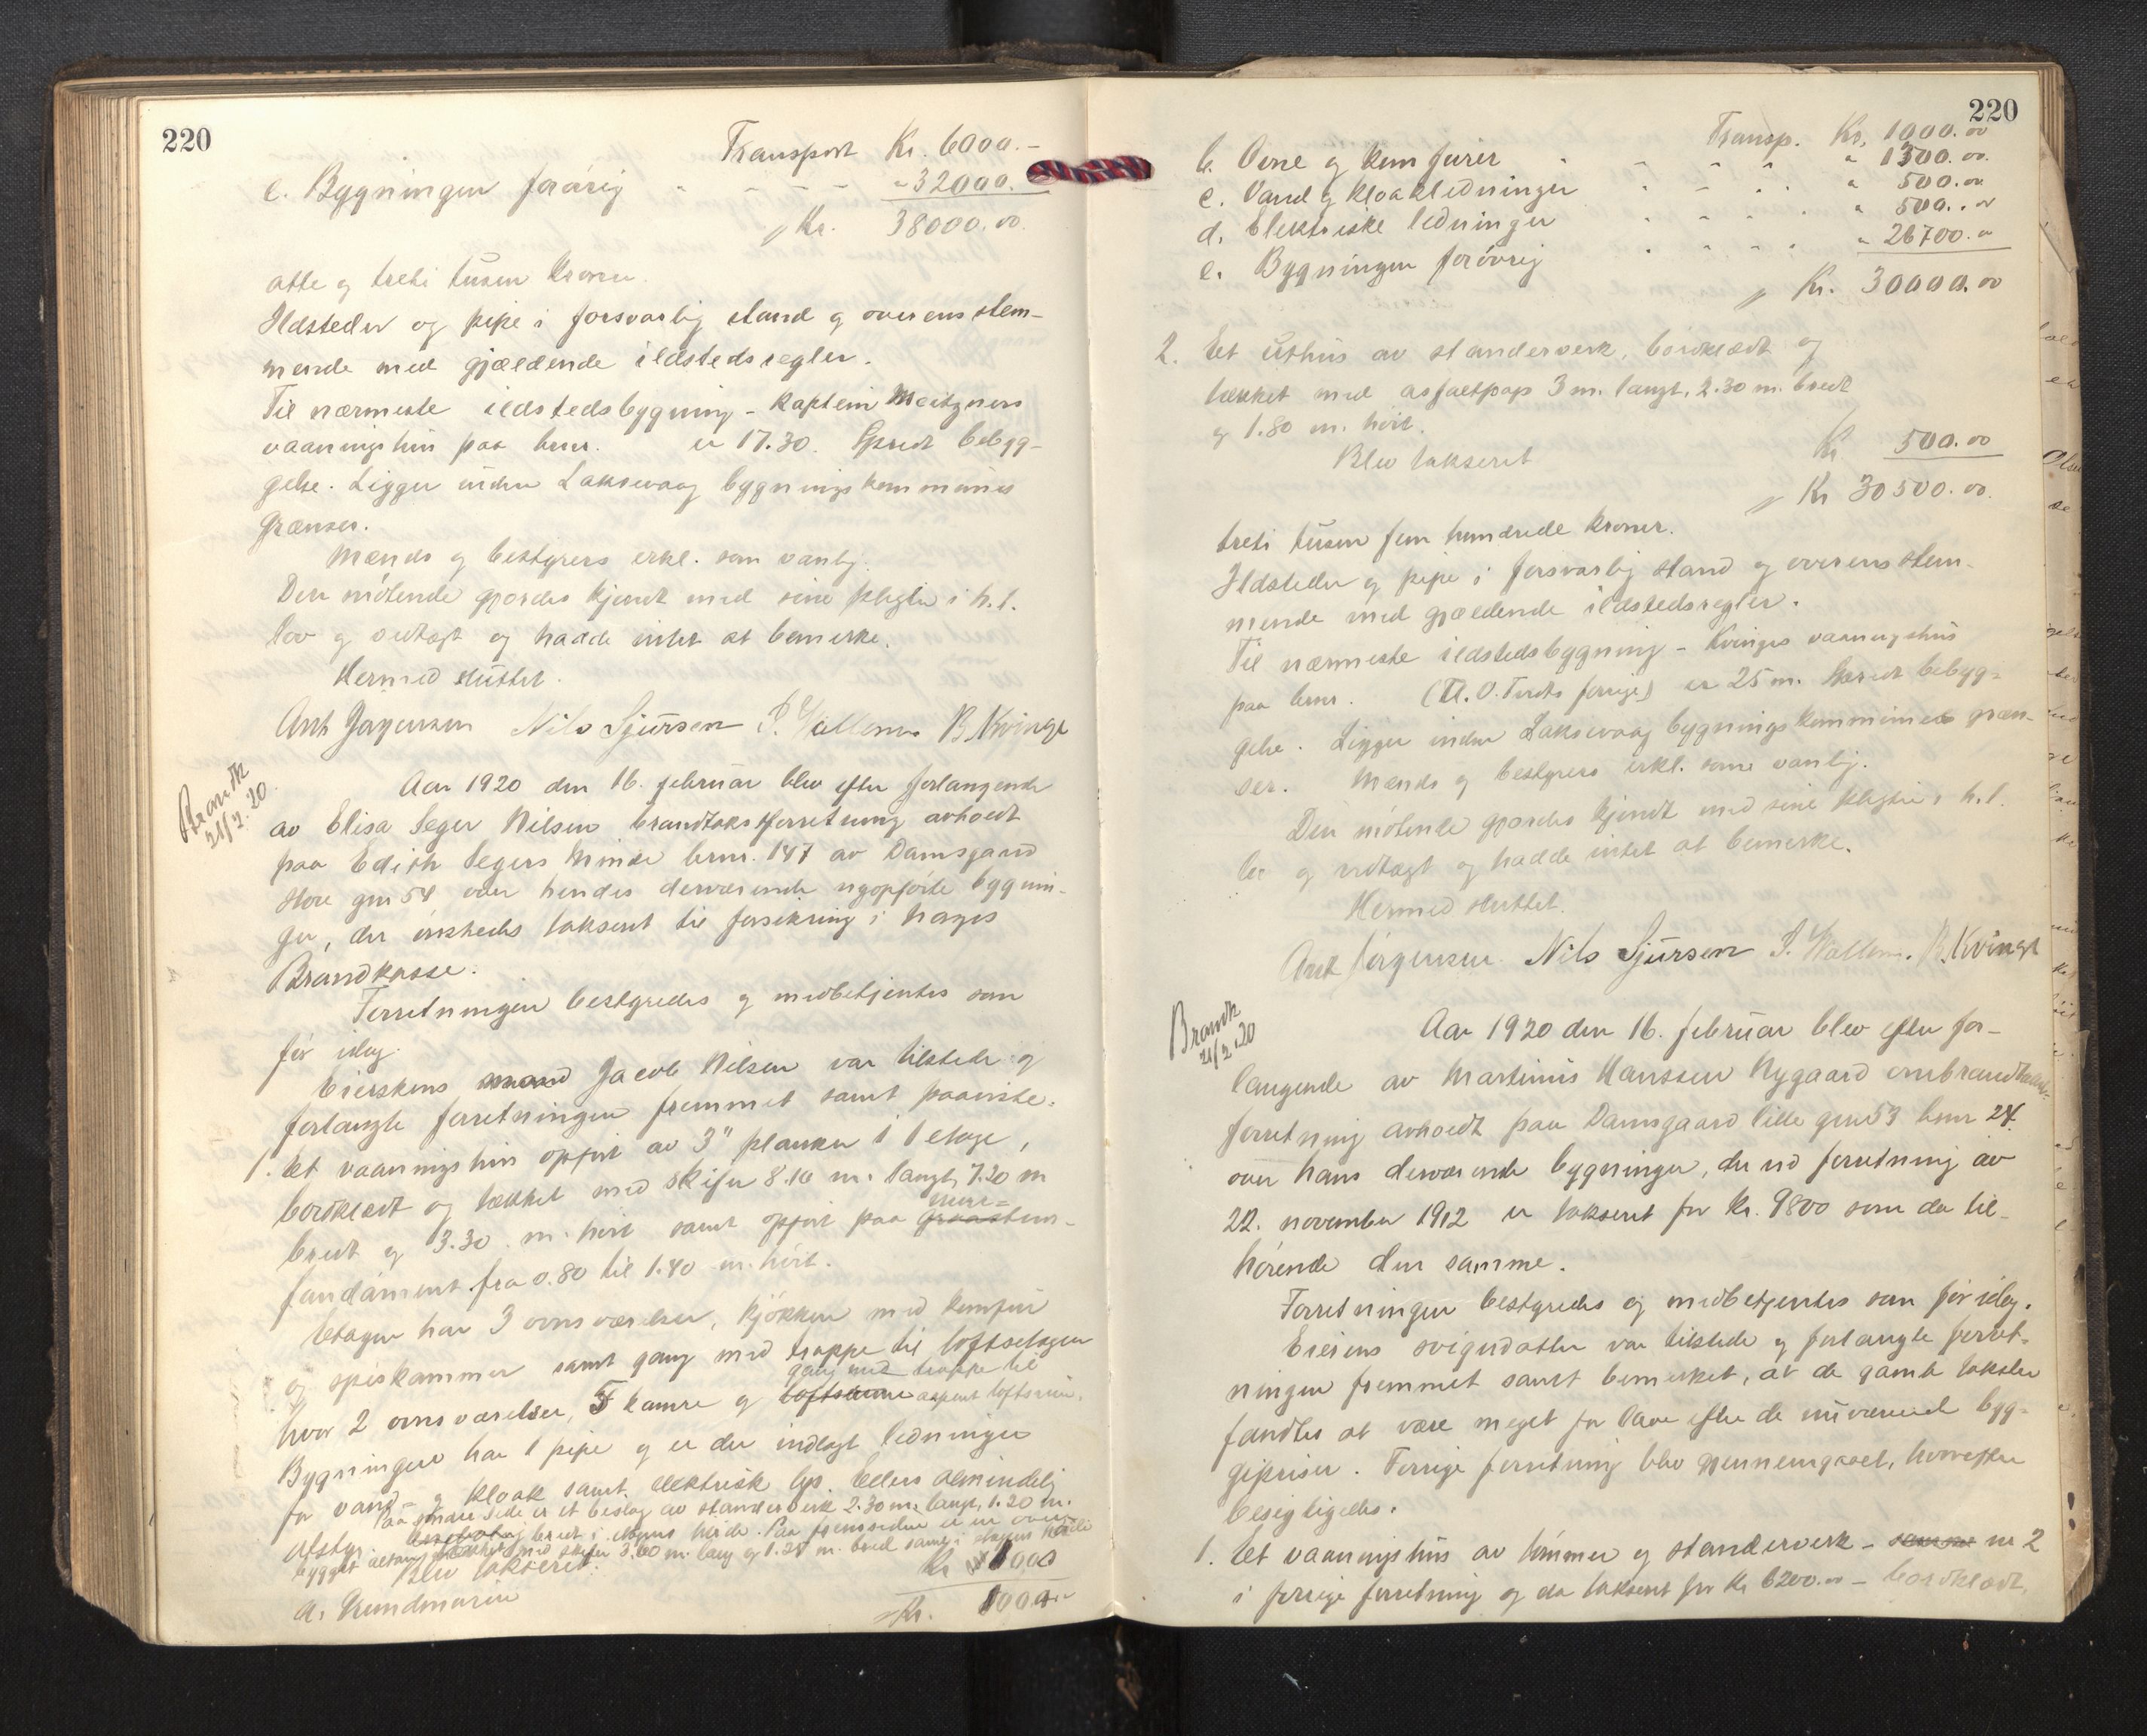 220
Transport Kr. 6000.-
e. Bygningen forövrig " - - - " 32000.
Kr. 38000.00
otte og treti tusen kroner.
Ildsteder og pipe i forsvarlig stand og overensstem-
mende med gjældende ildstedsregler.
Til nærmeste ildstedsbygning - kaptein Meitzners
vaaningshus paa brnr. er 17.30. Spredt bebyg-
gelse. Ligger inden Laksevaag bygningskommunes
grænser.
Mænds og bestyrers erkl. som vanlig.
Den mötende gjordes kjendt med sine pligter i h. t.
lov og vedtægt og hadde intet at bemerke.
Hermed sluttet.
Ant Jörgensen Nils Sjursen S. Wallem B. Kvinge
Brandtk
21/2.20
Aar 1920 den 16. februar blev efter forlangende
av Elisa Seger Nilsen brandtakstforretning avholdt
paa Edith Segers Minde brnr. 147 av Damsgaard
store gnr 54 over hendes derværende nyopförte bygnin-
ger, der önskedes taksert til forsikring i Norges
Brandkasse.
Forretningen bestyredes og medbetjentes som
för idag.
Eierskens mand Jacob Nilsen var tilstede og
forlangte forretningen fremmet samt paaviste.
1. Et vaaningshus opfört av 3" planker i 1 etage,
bordklædt og tækket med skifer 8.10 m. langt, 7.20 m
bredt og 3.30 m. höit samt opfört paa graastens- mur-
fundament fra 0.80 til 1.40 m. höit.
Etagen har 3 ovnsværelser, kjökken med komfur
og spiskammer samt gang med trappe til loftsetagen
hvor 2 ovnsværelser, 5 kamre og loftsrum gang med trappe til aapent loftsrum.
Bygningen har 1 pipe og er der indlagt ledninger
for vand- og kloak samt elektrisk lys. Ellers almindelig
utstyr. Paa smale side er et beslag av standerverk 2.30 m. langt, 1.20 m.
bredt i etagens höide. Paa fremsiden er en over-
bygget altan tækket med skifer 3.60 m. lang og 1.20 m. bred samt i etagens höide
Blev takseret:
a. Grundmuren Kr 1000
Kr. 1000.00
220
Transp. Kr. 1000.00
b. Ovne og komfurer - - - - " 1300.00
c. Vand og kloakledninger - - - " 500.00
d. Elektriske ledninger - - - - " 500.00
e. Bygningen forövrig - - - - " 26700.00
Kr. 30000.00
2. Et uthus av standerverk, bordklædt og
tækket med asfaltpap 3 m. langt, 2.30 m. bredt
og 1.80 m. höit.
Blev takseret Kr 500.00
Kr 30500.00
treti tusen fem hundrede kroner.
Ildsteder og pipe i forsvarlig stand og overensstem-
mende med gjældende ildstedsregler.
Til nærmeste ildstedsbygning - Kvinges vaaningshus
paa brnr. er 25 m. Spredt bebyg-
gelse. Ligger inden Laksevaag bygningskommunes græn-
ser. Mænds og bestyrers erkl. som vanlig.
Den mötende gjordes kjendt med sine pligter i h. t.
lov og vedtægt og hadde intet at bemerke.
Hermed sluttet.
Ant Jörgensen Nils Sjursen S. Wallem. B. Kvinge
Brandtk
21/2.20
Aar 1920 den 16. februar blev efter for-
langende av Martinus Hanssen Nygaard ombrandtakst-
forretning avholdt paa Damsgaard lille gnr 53 bnr 24
over hans derværende bygninger, der ved forretning av
22. november 1912 er taksert for kr. 9800 som da til-
hörende den samme.
Forretningen bestyredes og medbetjentes som för idag.
Eierens svigerdatter var tilstede og forlangte forret-
ningen fremmet samt bemerket, at de gamle takster
fandtes at være meget for lave efter de nuværende byg-
gepriser. Forrige forretning blev gjennemgaaet, hvorefter
besigtigedes.
1. Et vaaningshus av tömmer og standerverk - samme nr 2
i forrige forretning og da taksert for kr 6200.00 - bordklædt,